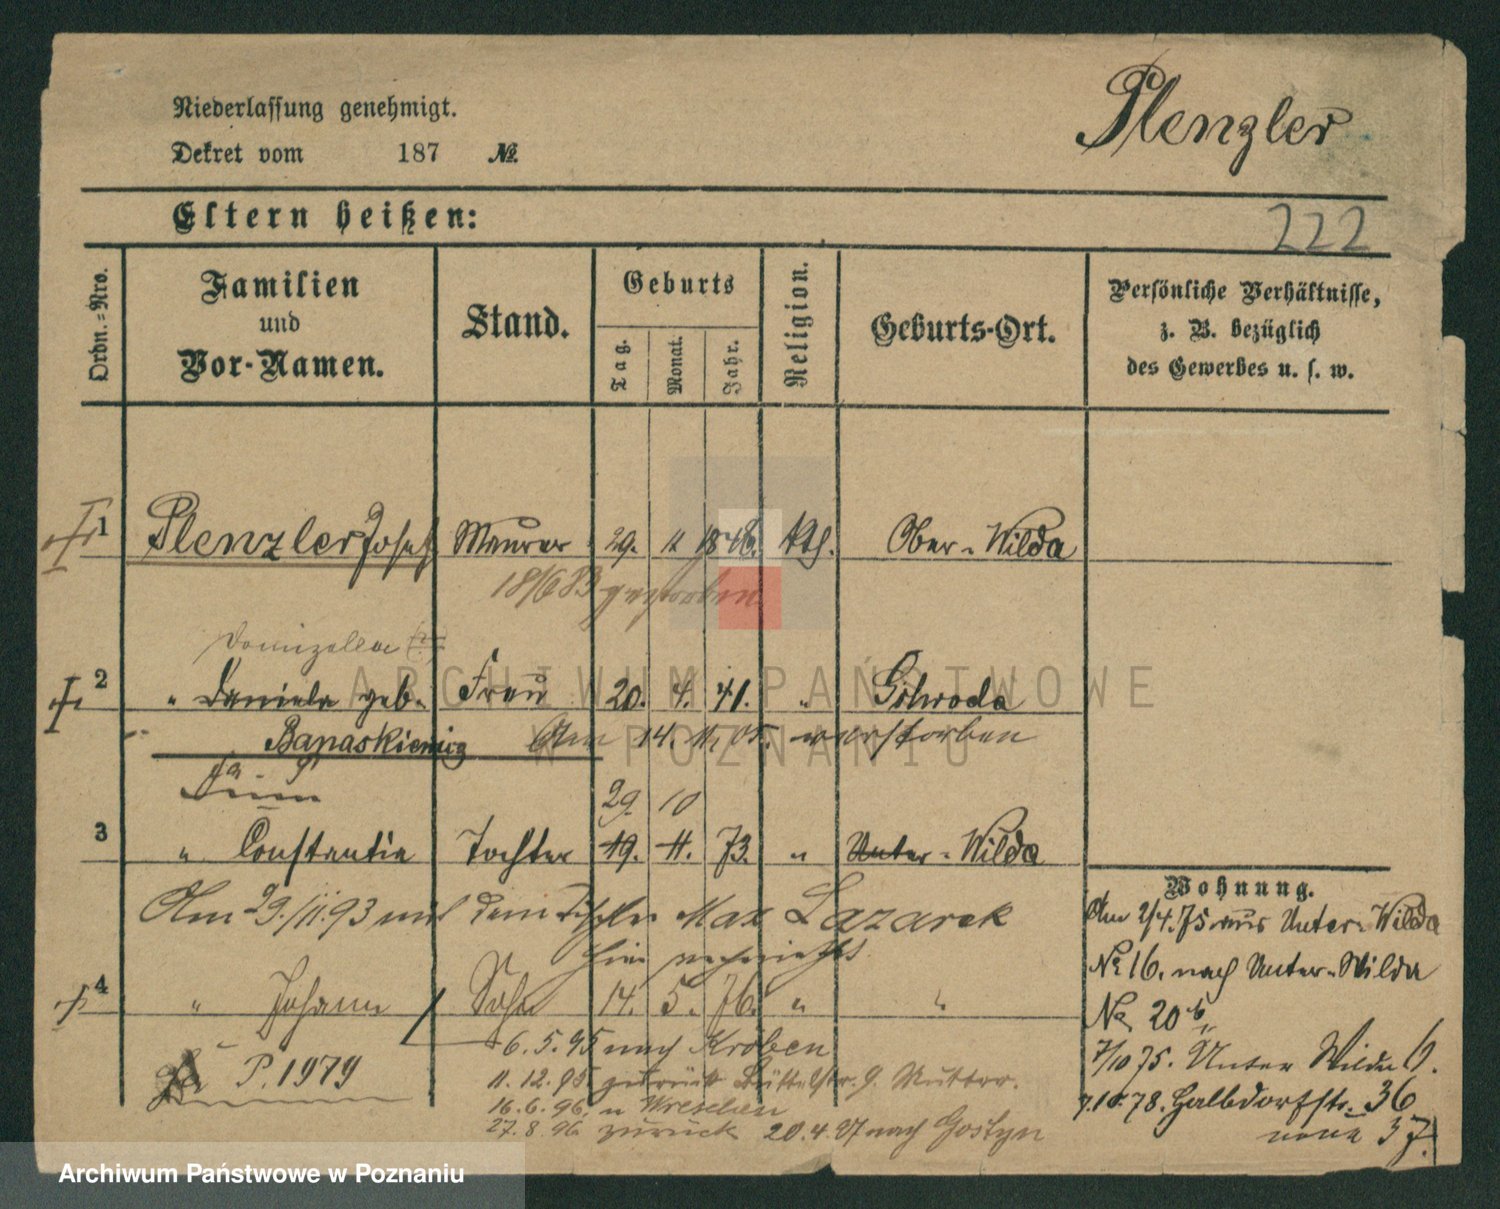 Plenzler
Niederlassung genehmigt.
Dekret vom 187 №
Eltern heißen:
222
Ordn.=Nro.
Familien
und
Vor-Namen.
Stand.
Geburts
Tag.
Monat.
Jahr.
Religion.
Geburts-Ort.
Persönliche Verhältnisse,
z. B. bezüglich
des Gewerbes u. s. w.
1 Plenzler Josef Maurer 29. 1848. kth. Ober-Wilda
18/6 83 gestorben
Domizella (?)
2 " Daniela geb. Frau 20. 4. 41. " Gilwoda
Bapaskiewicz Am 14. 11. 05. verstorben
29. 10
3 " Constantia Tochter 19. 11. 73. " Unter-Wilda
Am 29./11.93 mit dem Tischler Max Lazarek
hier verheirathet.
4 " Johann Sohn 14. 5. 76. " "
P. 1979
6. 5. 95 nach Kröben
11. 12. 95 zurück 9. Mutter.
16. 6. 96. n Wreschen
27. 8. 96 zurück 20. 4. 97 nach Gostyn
Wohnung.
Am 2/4.75 aus Unter-Wilda
No 16. nach Unter-Wilda
No 20b
7/10 75. Unter Wilda 6.
7.10.78. Halbdorfstr. 36
neue 37.
ARCHIWUM PAŃSTWOWE
W POZNANIU
Archiwum Państwowe w Poznaniu